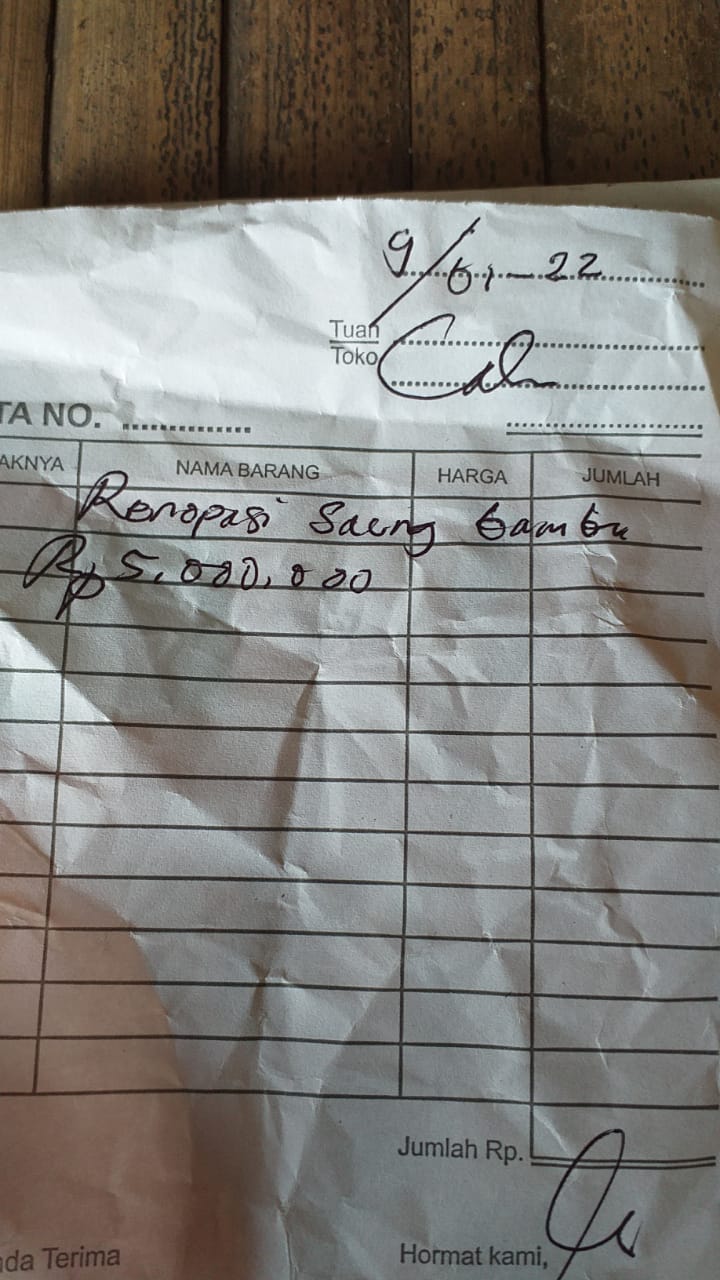 9/01-22
Tuan
Toko
TA NO. ....................
AKNYA NAMA BARANG HARGA JUMLAH
Renopasi Saung bambu
Rp 5.000.000
Jumlah Rp.
nda Terima Hormat kami,